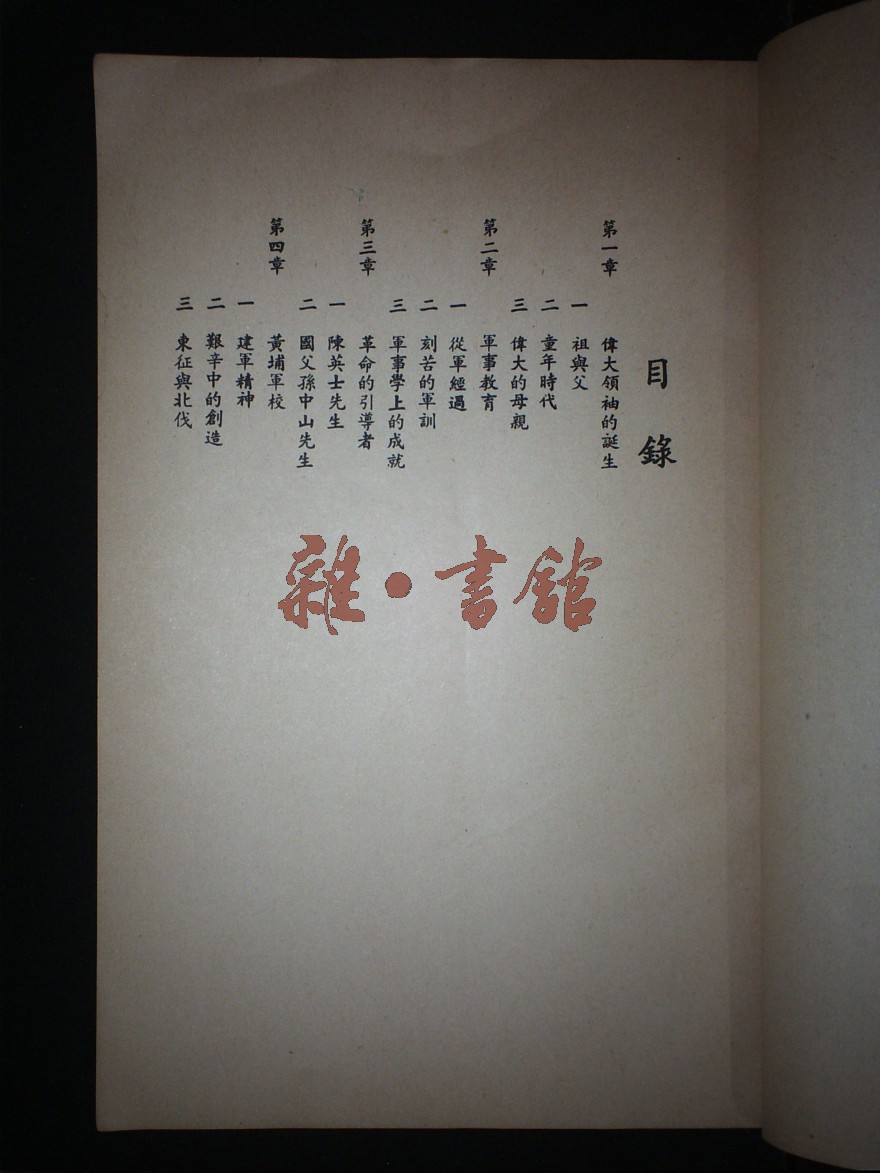 目錄
第一章 偉大領袖的誕生
一 祖與父
二 童年時代
三 偉大的母親
第二章 軍事教育
一 從軍經過
二 刻苦的軍訓
三 軍事學上的成就
第三章 革命的引導者
一 陳英士先生
二 國父孫中山先生
第四章 黃埔軍校
一 建軍精神
二 艱辛中的創造
三 東征與北伐
雜•書館